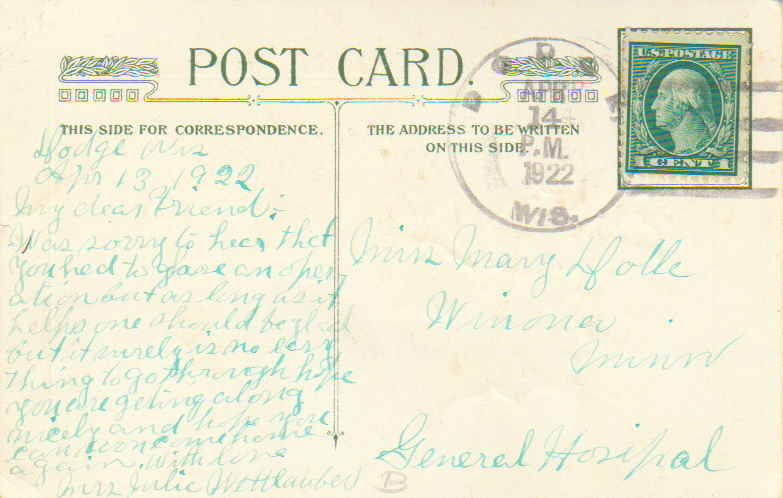 POST CARD.
THIS SIDE FOR CORRESPONDENCE.
Dodge Wis
Apr 13, 1922
My dear Friend:-
Was sorry to hear that
you hed to gave an oper-
ation but as long as it
helps one should be glad
but it surely is no easy
thing to go through hope
you are geting along
nicely and hope you
can soon come home
again. With love
Mrs Julie
THE ADDRESS TO BE WRITTEN
ON THIS SIDE
Miss Mary Dolle
Winona
Minn
General Hosipal
B
DODGE
APR
14
P.M.
1922
WIS.
U.S. POSTAGE
1 CENT 1